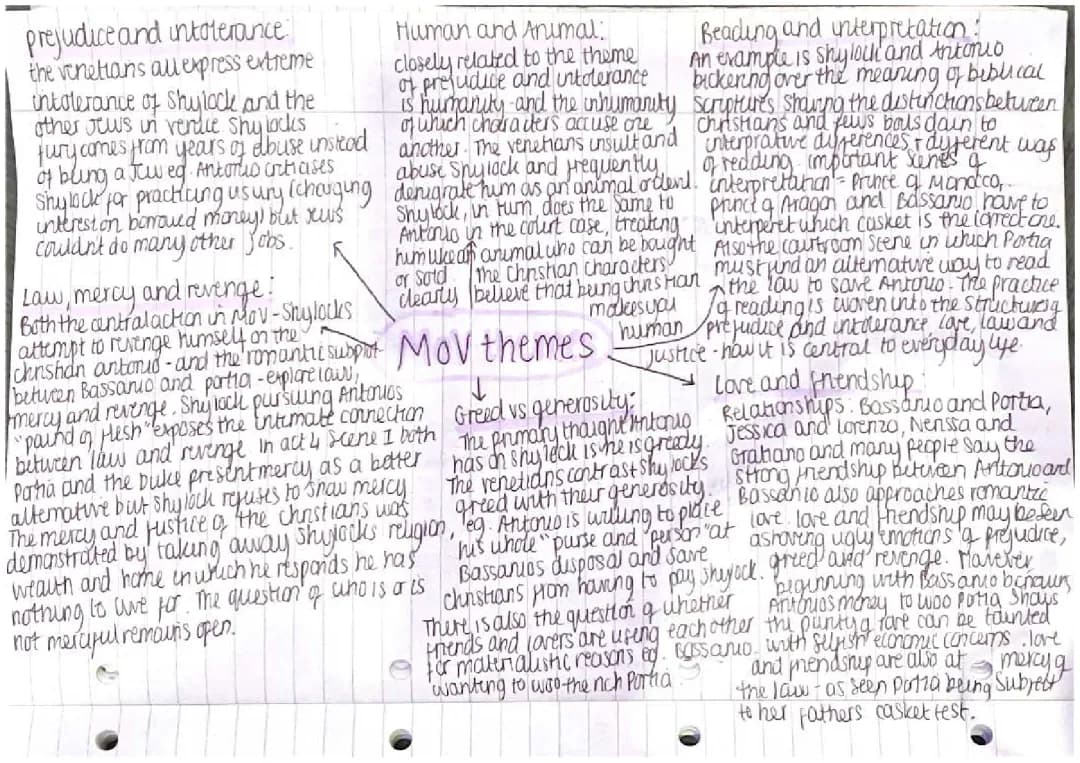 prejudice and intolerance:
the venetians all express extreme
intolerance of Shylock and the
other Jews in venice. Shylocks
fury comes from years of abuse instead
of being a Jew eg. Antonio critiases
Shylock for practicing usury (charging
interest on borrowed money) but Jews
couldn't do many other jobs.
Law, mercy and revenge:
Both the central action in MoV - Shylocks
attempt to revenge himself on the
christian antonio - and the romantic subplot
between Bassanio and portia - explore law,
mercy and revenge. Shylock pursuing Antonios
"pound of flesh" exposes the intimate connection
between law and revenge. In act 4 scene 1 both
Portia and the Duke present mercy as a better
alternative but Shylock refuses to show mercy.
The mercy and justice of the christians was
demonstrated by taking away Shylocks religion,
wealth and home in which he responds he has
nothing to live for. The question of who is or is
not merciful remains open.
Human and Animal:
closely related to the theme
of prejudice and intolerance
is humanity - and the inhumanity
of which characters accuse one
another. The venetians insult and
abuse Shylock and frequently
denigrate him as an animal or devil.
Shylock, in turn does the same to
Antonio in the court case, treating
him like an animal who can be bought
or sold. The christian characters
clearly believe that being christian
makes you
human
MoV themes
Greed vs generosity:
The primary thought Antonio
has on shylock is he is greedy.
The venetians contrast shylocks
greed with their generosity.
eg. Antonio is willing to place
his whole "purse and "person" at
Bassanios disposal and save
christians from having to pay shylock.
There is also the question of whether
friends and lovers are using each other
for materialistic reasons eg. Bassanio
wanting to woo the rich Portia
Reading and interpretation:
An example is Shylock and Antonio
bickering over the meaning of biblical
scriptures, sharing the distinctions between
christians and jews boils down to
interprative differences + dyferent ways
of reading. important scenes of
interpretation = Prince of Morocco,
prince of Aragon and Bassanio have to
interpret which casket is the correct one.
Also the courtroom scene in which Portia
must find an alternative way to read
the law to save Antonio. The practice
of reading is woven into the structures of
prejudice and intolerance, love, law and
justice - how it is central to everyday life.
Love and friendship:
Relationships: Bassanio and Portia,
Jessica and Lorenzo, Nerissa and
Gratiano and many people say the
strong friendship between Antonio and
Bassanio also approaches romantic
love. love and friendship may be seen
as having ugly emotions of prejudice,
greed and revenge. However
beginning with Bassanio borrows
Antonios money to woo Portia shows
the purity of love can be tainted
with selfish economic concerns. love
and friendship are also at mercy of
the law - as seen Portia being subject
to her fathers casket test.